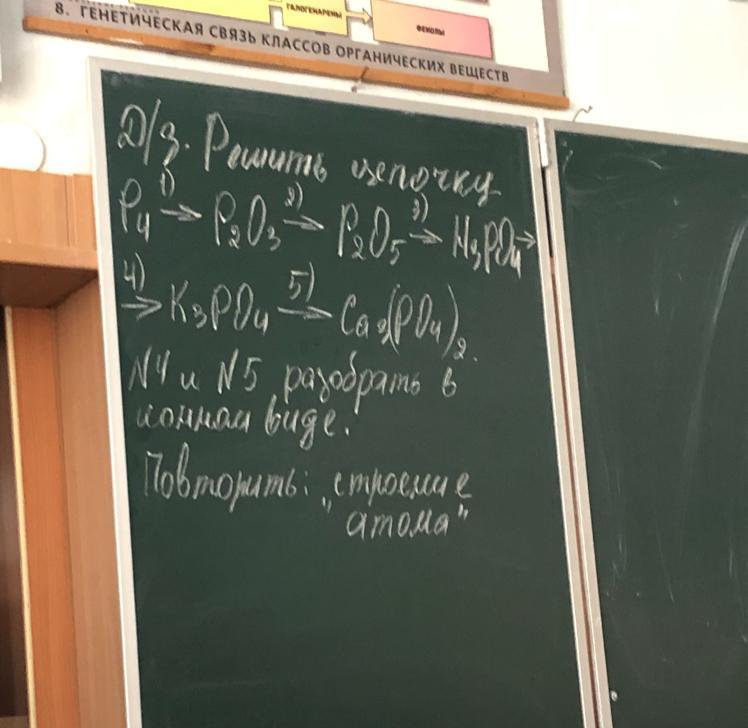 ГАЛОГЕНАРЕНЫ
ФЕНОЛЫ
8. ГЕНЕТИЧЕСКАЯ СВЯЗЬ КЛАССОВ ОРГАНИЧЕСКИХ ВЕЩЕСТВ
Д/з. Решить цепочку
P₄ 1)→ P₂O₃ 2)→ P₂O₅ 3)→ H₃PO₄ →
4)→ K₃PO₄ 5)→ Ca₃(PO₄)₂.
N4 и N5 разобрать в
ионном виде.
Повторить: „строение
атома"